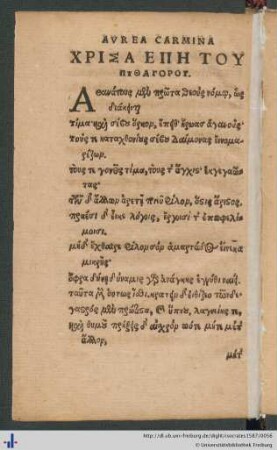 AVREA CARMINA
ΧΡΙΣΑ ΕΠΗ ΤΟΥ
ΠΥΘΑΓΟΡΟΥ.
Ἀθανάτους μὲν πρῶτα θεοὺς νόμῳ, ὡς
διάκειται
τίμα καὶ σέβου ὅρκον, ἔπειθ' ἥρωας ἀγαυούς·
τούς τε καταχθονίους σέβε δαίμονας ἔννομα
ῥέζων.
τούς τε γονεῖς τίμα, τούς τ' ἄγχις' ἐκγεγαῶ
τας·
τῶν δ' ἄλλων ἀρετῇ ποιοῦ φίλον, ὅςις ἄριςος.
πραέσι δ' εἶκε λόγοις, ἔργοισί τ' ἐπωφελί
μοισι.
μηδ' ἔχθαιρε φίλον σὸν ἁμαρτάδος εἵνεκα
μικρῆς·
ὄφρα δύνῃ δύναμις γὰρ ἀνάγκης ἐγγύθι ναίει.
ταῦτα μὲν οὕτως ἴσθι, κρατεῖν δ' εἰθίζεο τῶνδε
γαςρὸς μὲν πρῶτιςα, καὶ ὕπνου, λαγνείης τε,
καὶ θυμοῦ πρήξεις δ' αἰσχρὸν ποτὲ μήτε μετ'
ἄλλου,
μήτ'
http://dl.ub.uni-freiburg.de/diglit/isocrates1587/0056
© Universitätsbibliothek Freiburg